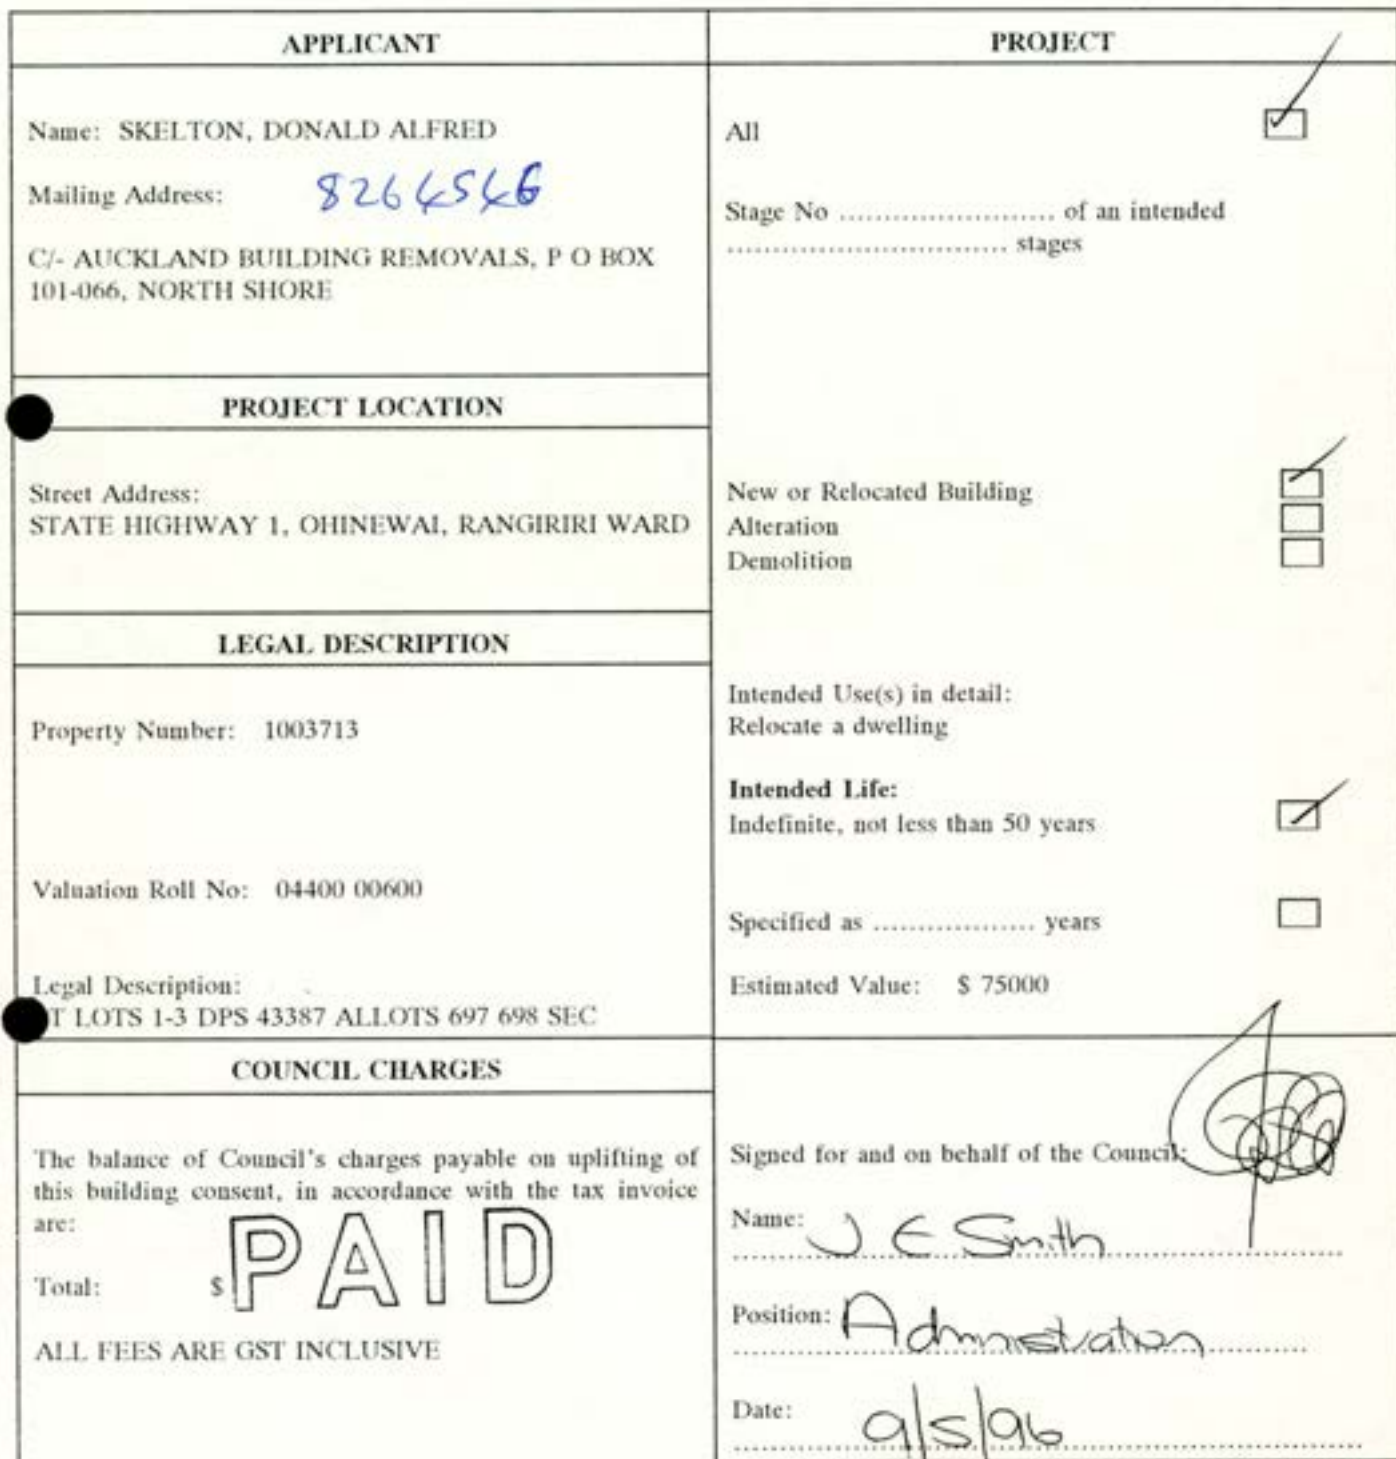 APPLICANT
Name: SKELTON, DONALD ALFRED
Mailing Address: 8264546
C/- AUCKLAND BUILDING REMOVALS, P O BOX
101-066, NORTH SHORE
PROJECT LOCATION
Street Address:
STATE HIGHWAY 1, OHINEWAI, RANGIRIRI WARD
LEGAL DESCRIPTION
Property Number: 1003713
Valuation Roll No: 04400 00600
Legal Description:
T LOTS 1-3 DPS 43387 ALLOTS 697 698 SEC
COUNCIL CHARGES
The balance of Council's charges payable on uplifting of
this building consent, in accordance with the tax invoice
are:
Total: $ PAID
ALL FEES ARE GST INCLUSIVE
PROJECT
All
Stage No ........................ of an intended
............................... stages
New or Relocated Building
Alteration
Demolition
Intended Use(s) in detail:
Relocate a dwelling
Intended Life:
Indefinite, not less than 50 years
Specified as .................. years
Estimated Value: $ 75000
Signed for and on behalf of the Council:
Name: J E Smith
Position: Administration
Date: 9/5/96